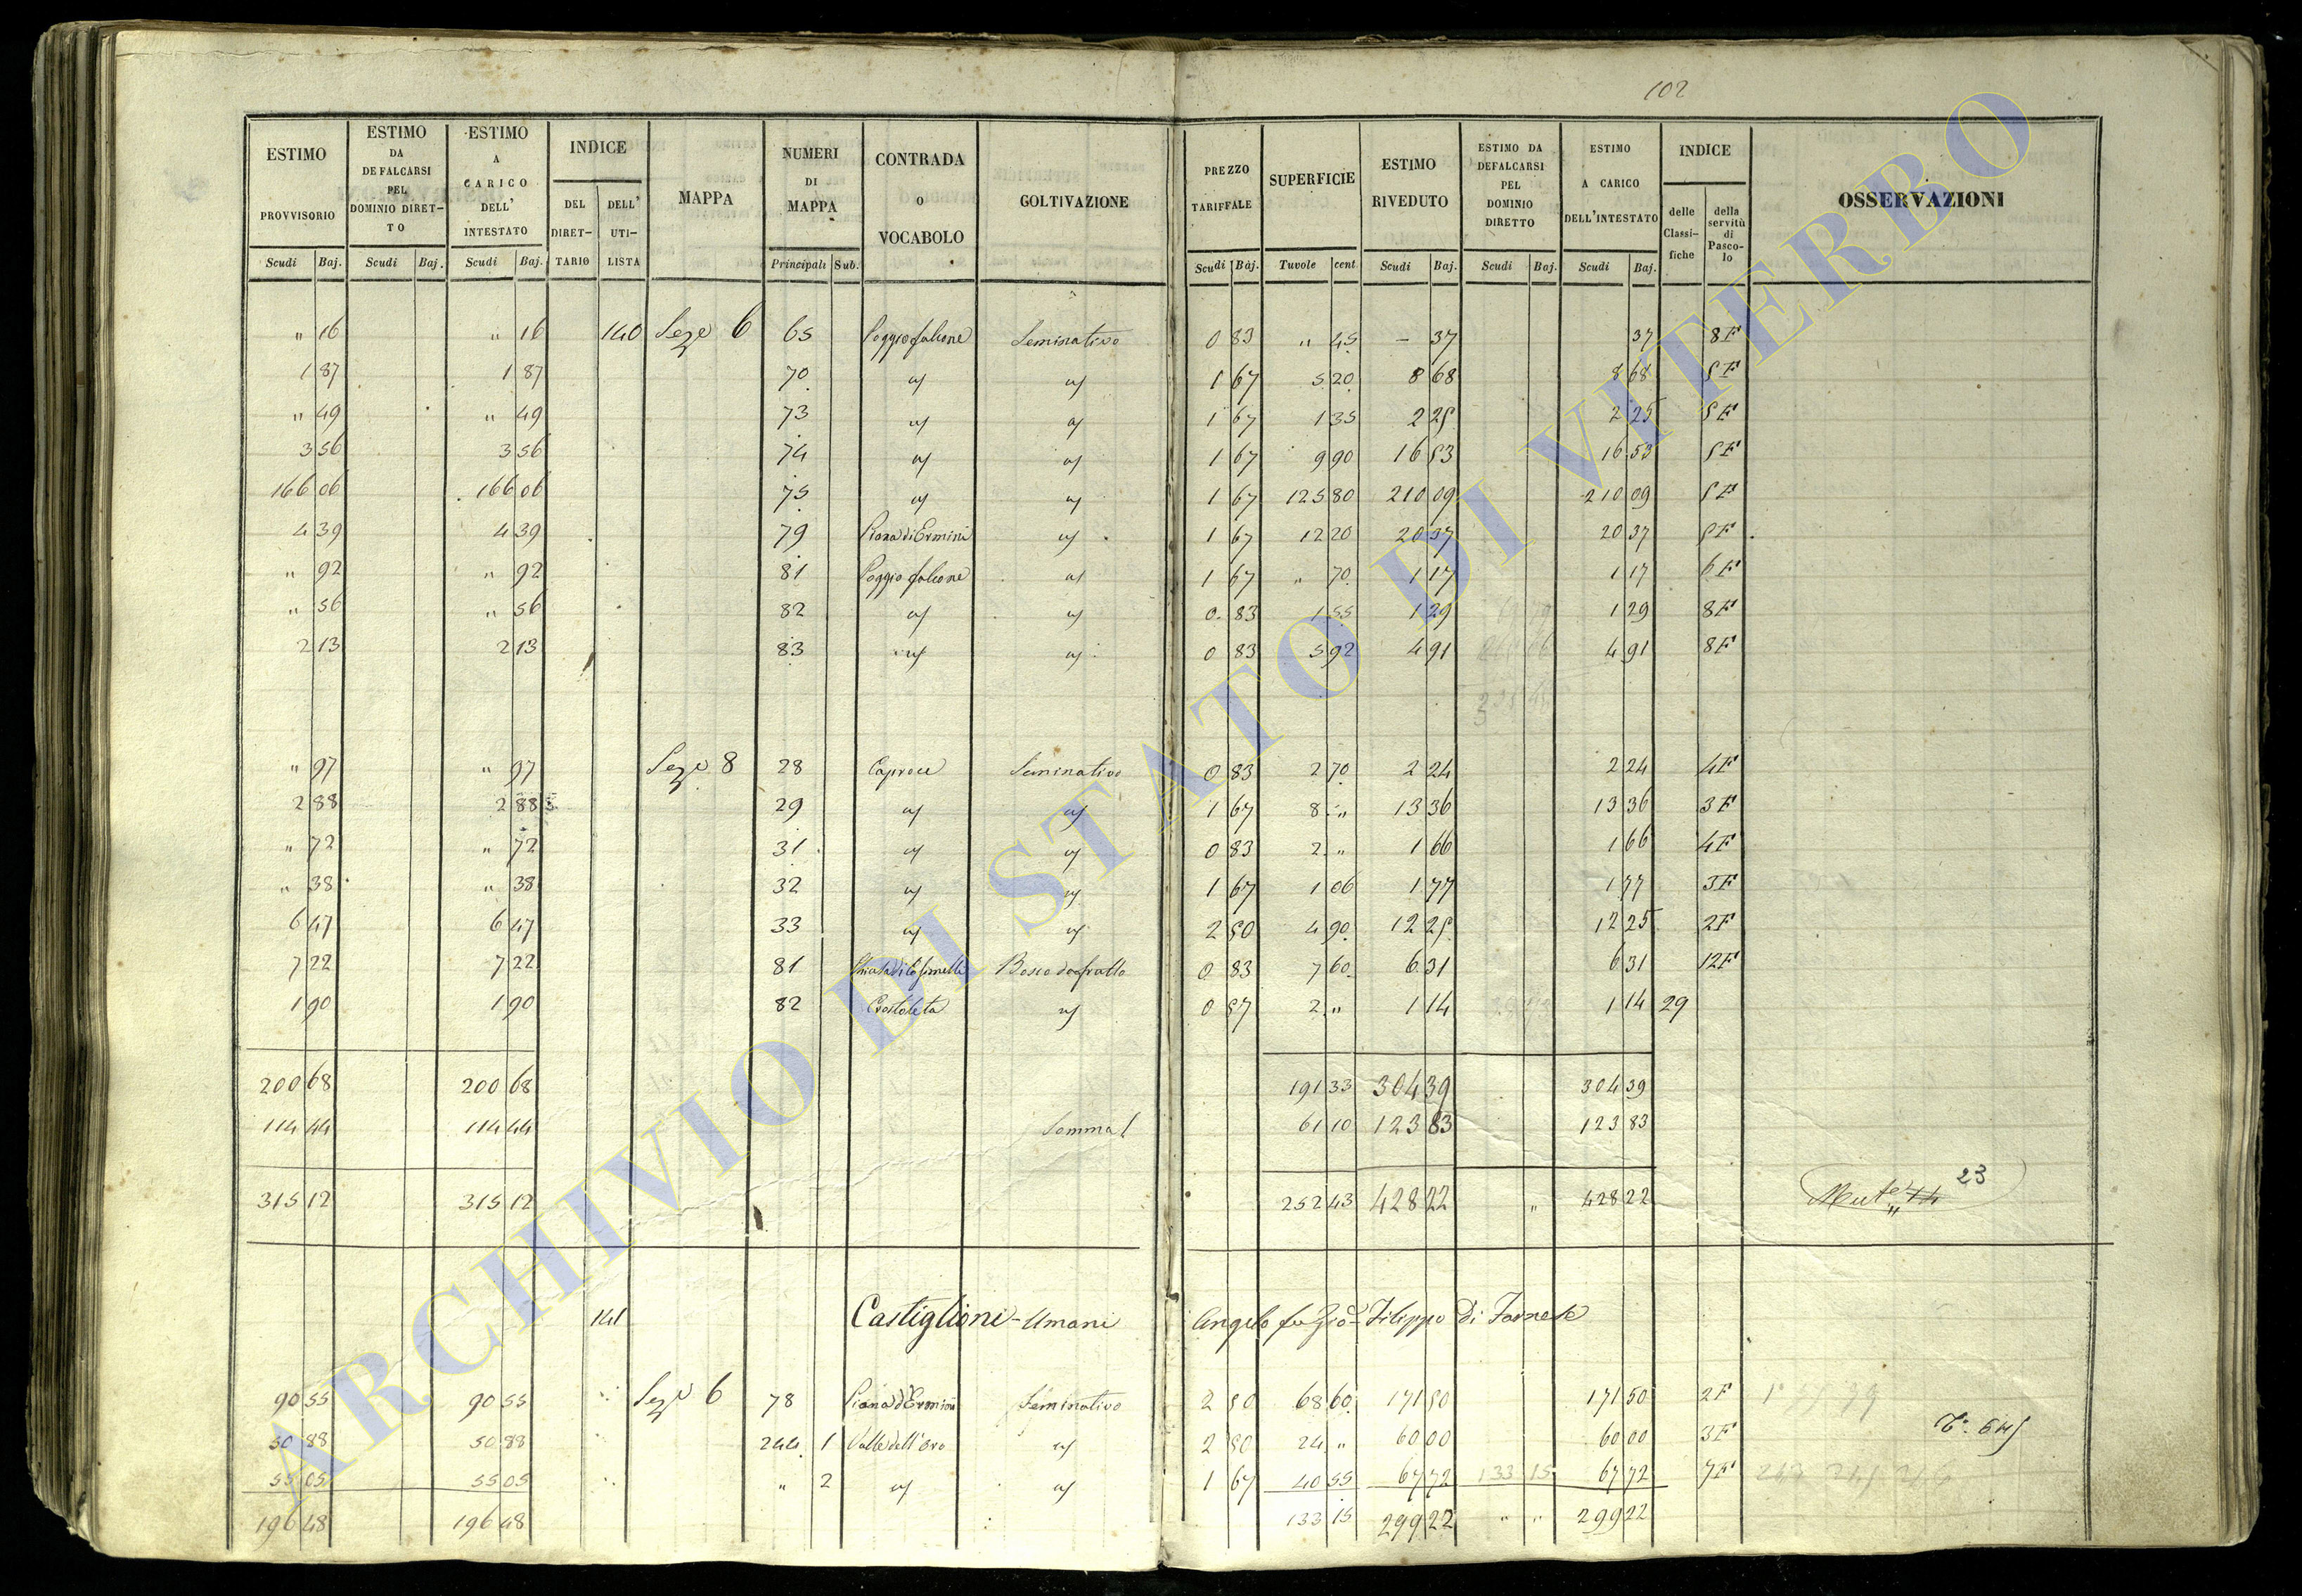 102
ESTIMO PROVVISORIO ESTIMO DA DEFALCARSI PEL DOMINIO DIRET-TO ESTIMO A CARICO DELL' INTESTATO INDICE DEL DIRET-TARIO DELL' UTI-LISTA MAPPA NUMERI DI MAPPA CONTRADA O VOCABOLO COLTIVAZIONE PREZZO TARIFFALE SUPERFICIE ESTIMO RIVEDUTO ESTIMO DA DEFALCARSI PEL DOMINIO DIRETTO ESTIMO A CARICO DELL'INTESTATO INDICE delle Classi-fiche della servitù di Pasco-lo OSSERVAZIONI
Scudi Baj. Scudi Baj. Scudi Baj. Principali Sub. Scudi Baj. Tavole cent. Scudi Baj. Scudi Baj. Scudi Baj.
" 16 " 16 140 Seze 6 65 Poggio falcone Seminativo 0 83 " 45 – 37 37 8F
1 87 1 87 70 " " 1 67 5 20 8 68 8 68 5F
" 49 " 49 73 " " 1 67 1 35 2 25 2 25 5F
3 56 3 56 74 " " 1 67 9 90 16 53 16 53 5F
166 06 166 06 75 " " 1 67 125 80 210 09 210 09 5F
4 39 4 39 79 Piana di Ermini " 1 67 12 20 20 37 20 37 5F
" 92 " 92 81 Poggio falcone " 1 67 " 70 1 17 1 17 6F
" 56 " 56 82 " " 0 83 1 55 1 29 1 29 8F
2 13 2 13 83 " " 0 83 5 92 4 91 4 91 8F
" 97 " 97 Seze 8 28 Caprece Seminativo 0 83 2 70 2 24 2 24 4F
2 88 2 88 29 " " 1 67 8 " 13 36 13 36 3F
" 72 " 72 31 " " 0 83 2 " 1 66 1 66 4F
" 38 " 38 32 " " 1 67 1 06 1 77 1 77 3F
6 47 6 47 33 " " 2 50 4 90 12 25 12 25 2F
7 22 7 22 81 Bosco da frutto 0 83 7 60 6 31 6 31 12F
1 90 1 90 82 " 0 57 2 " 1 14 1 14 29
200 68 200 68 191 33 304 39 304 39
114 44 114 44 Somma 61 10 123 83 123 83
315 12 315 12 252 43 428 22 " 428 22 23
141 Castiglioni-Umani Angelo fu Gio Filippo di Farnese
90 55 90 55 Seze 6 78 Piana d'Ermini Seminativo 2 50 68 60 171 50 171 50 2F
50 88 50 88 244 1 Valle dell'oro " 2 50 24 " 60 00 60 00 3F
55 05 55 05 " 2 " " 1 67 40 55 67 72 133 15 67 72 7F
196 48 196 48 133 15 299 22 " " 299 22
ARCHIVIO DI STATO DI VITERBO